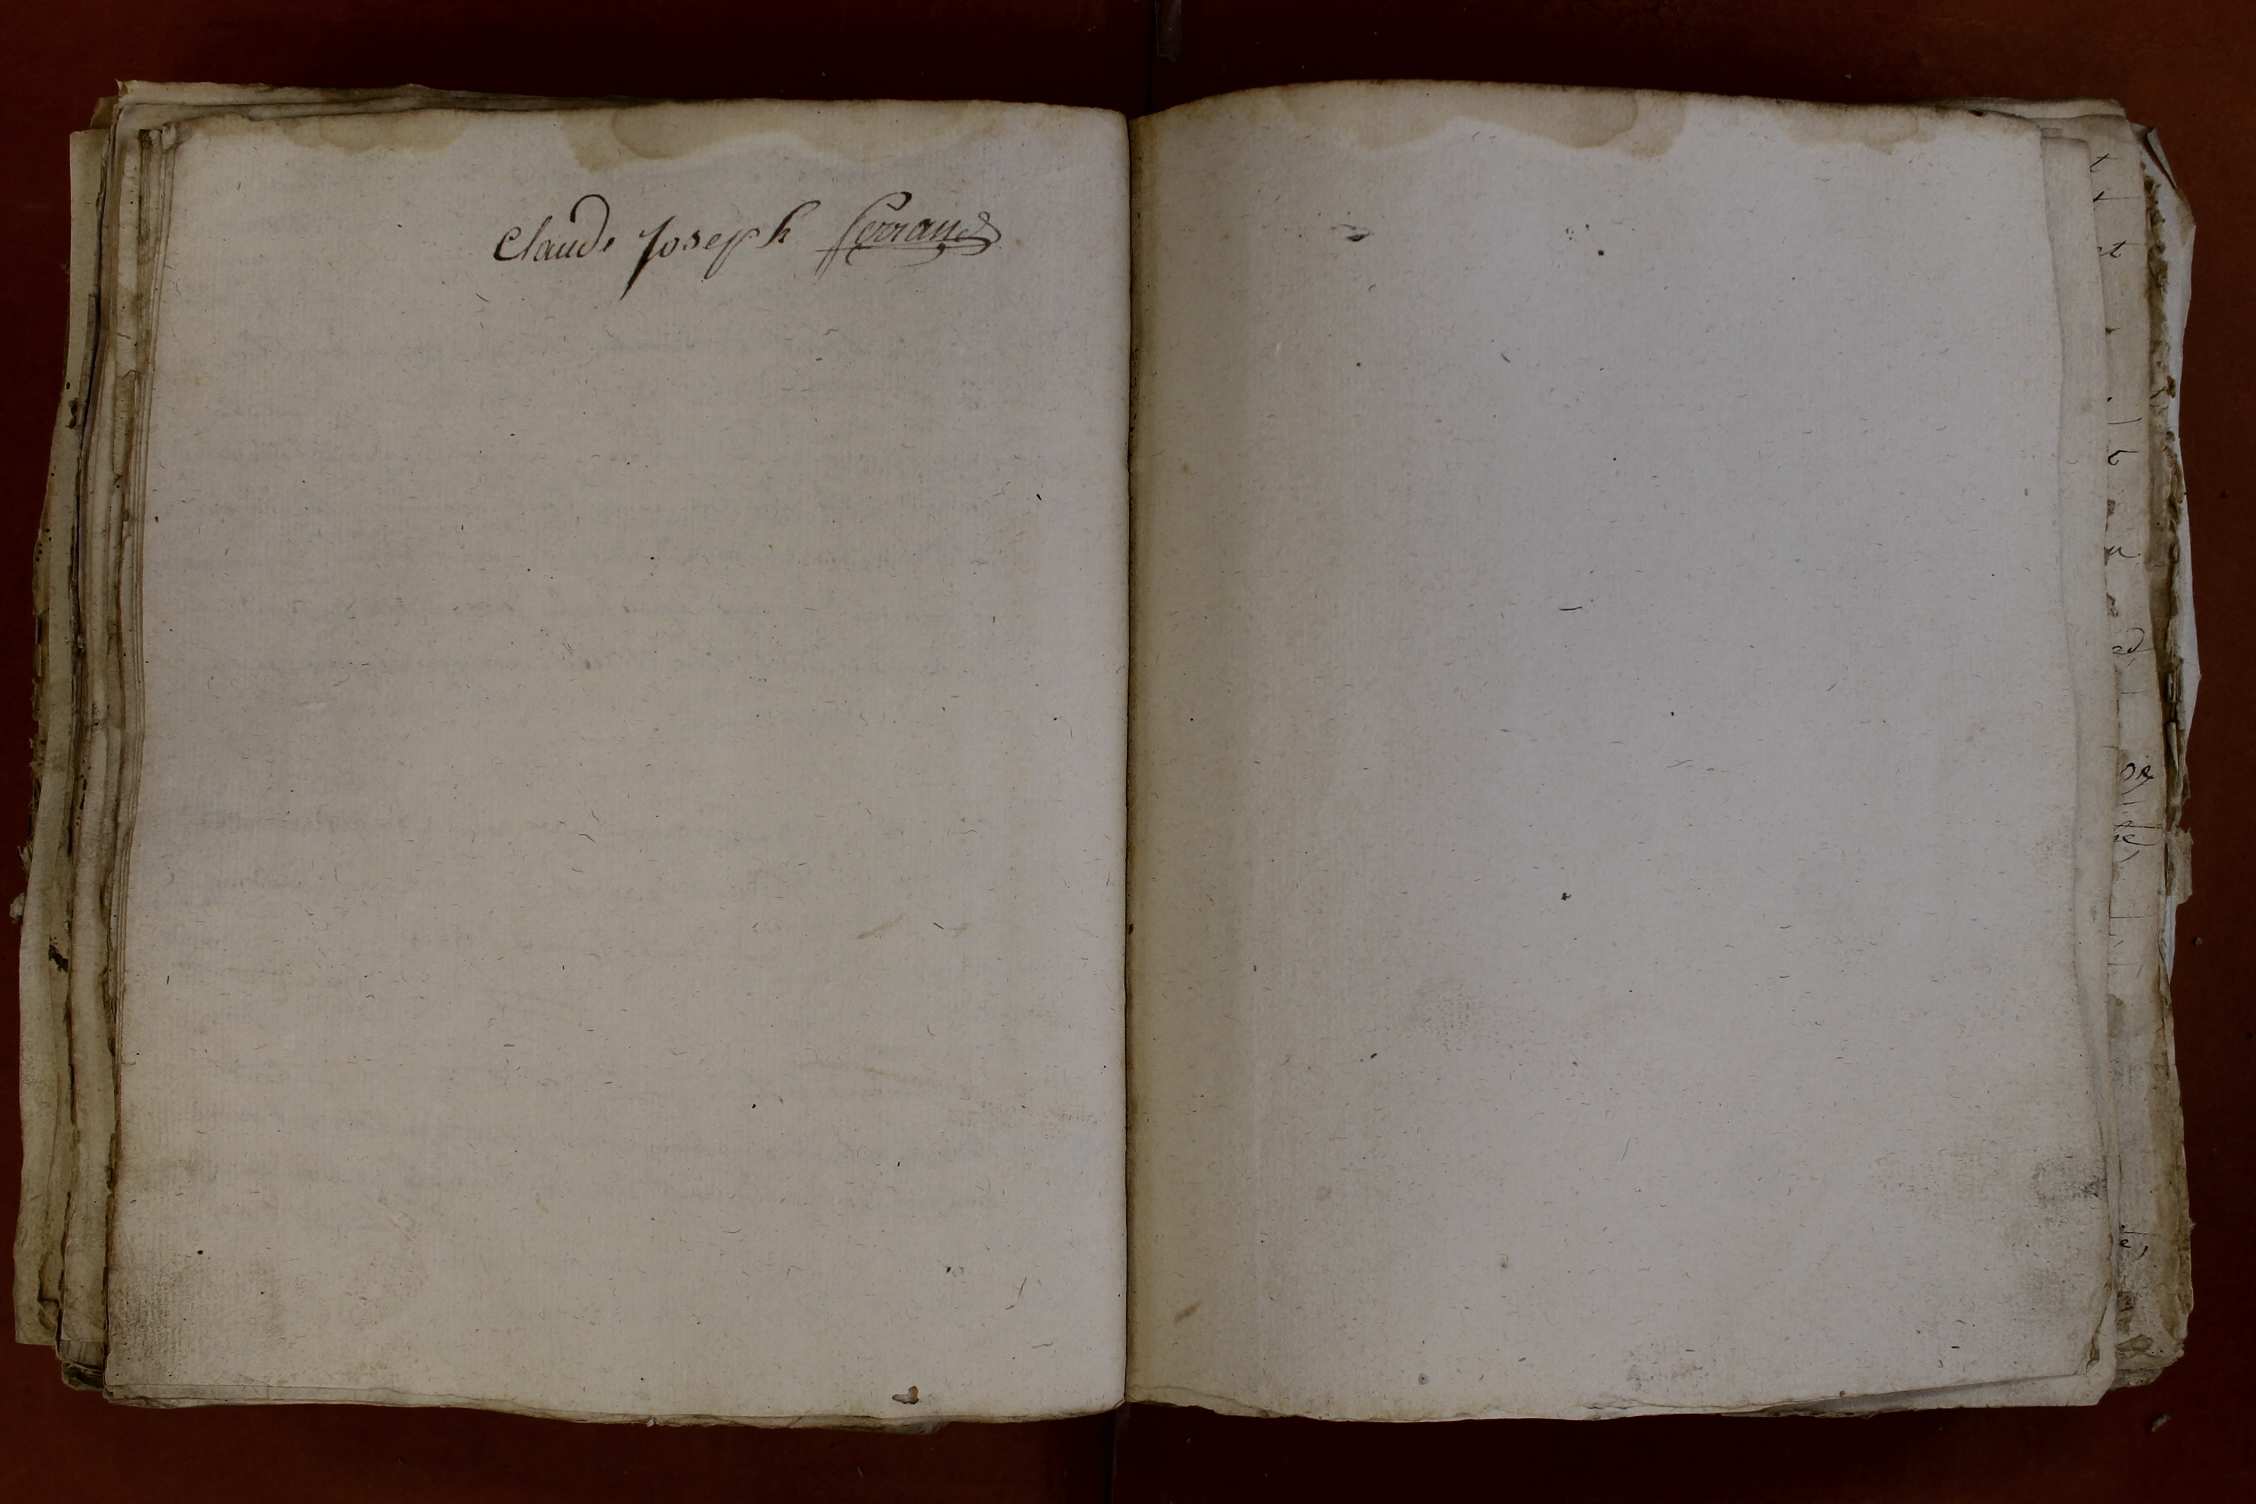 Claude Joseph ferrand